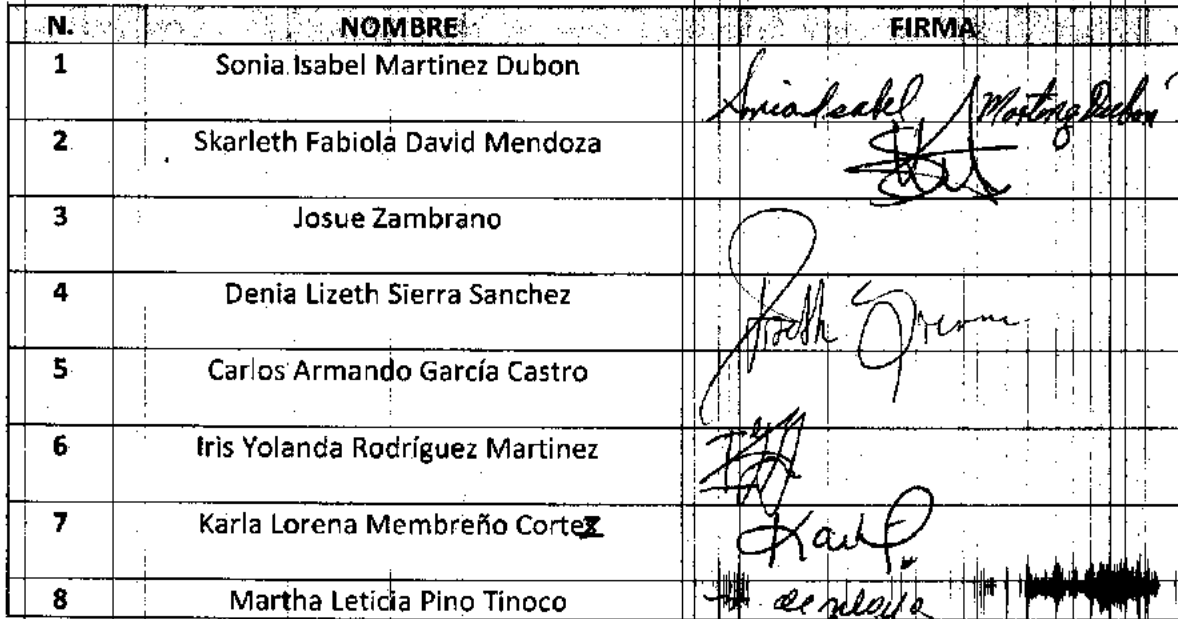 N. NOMBRE FIRMA
1 Sonia Isabel Martinez Dubon Sonia Isabel Martinez Dubon
2 Skarleth Fabiola David Mendoza
3 Josue Zambrano
4 Denia Lizeth Sierra Sanchez
5 Carlos Armando García Castro
6 Iris Yolanda Rodríguez Martinez
7 Karla Lorena Membreño Cortez
8 Martha Leticia Pino Tinoco